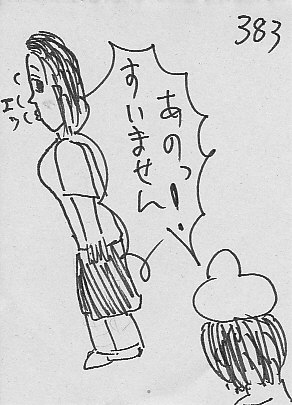 383
あのっ!
すいません
エ?